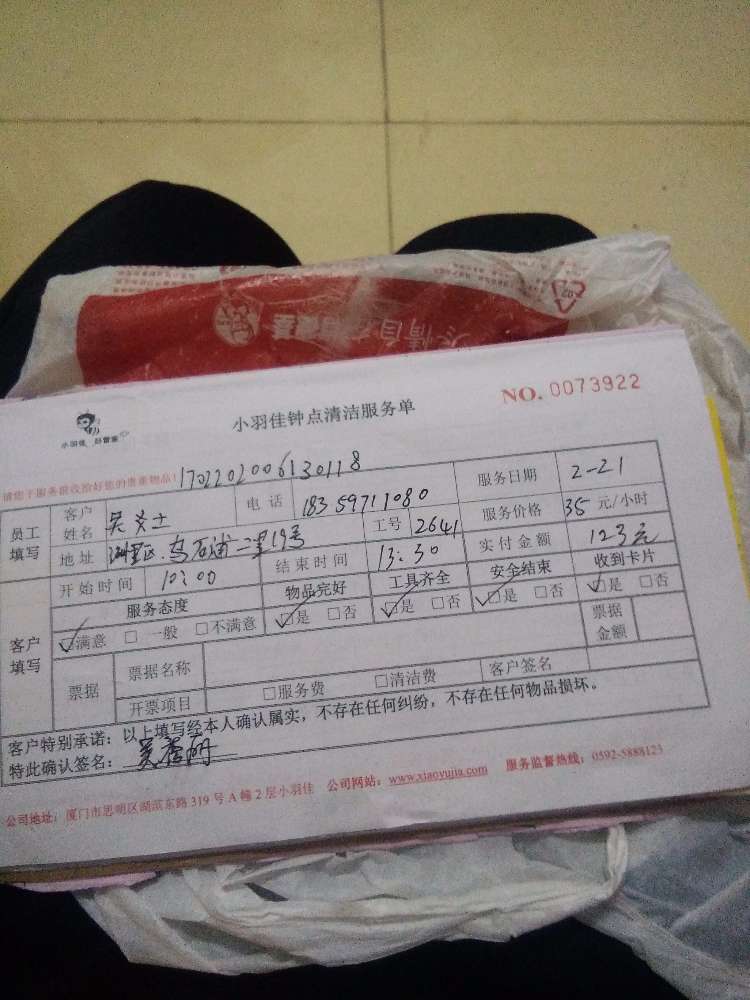 小羽佳钟点清洁服务单
NO. 0073922
小羽佳 好管家
请您于服务前收拾好您的贵重物品! 1702202006130118
服务日期 2-21
员工填写 客户姓名 吴女士 电话 18359711080 服务价格 35 元/小时
地址 湖里区.乌石浦二里19号 工号 2641 实付金额 123元
开始时间 10:00 结束时间 13:30
服务态度 物品完好 工具齐全 安全结束 收到卡片
客户填写 ☑满意 □ 一般 □不满意 ☑是 □否 ☑是 □否 ☑是 □否 ☑是 □否
票据 票据名称 票据金额
开票项目 □服务费 □清洁费 客户签名
客户特别承诺:以上填写经本人确认属实,不存在任何纠纷,不存在任何物品损坏。
特此确认签名:
公司地址:厦门市思明区湖滨东路 319 号 A 幢 2 层小羽佳 公司网站:www.xiaoyujia.com 服务监督热线:0592-5888123